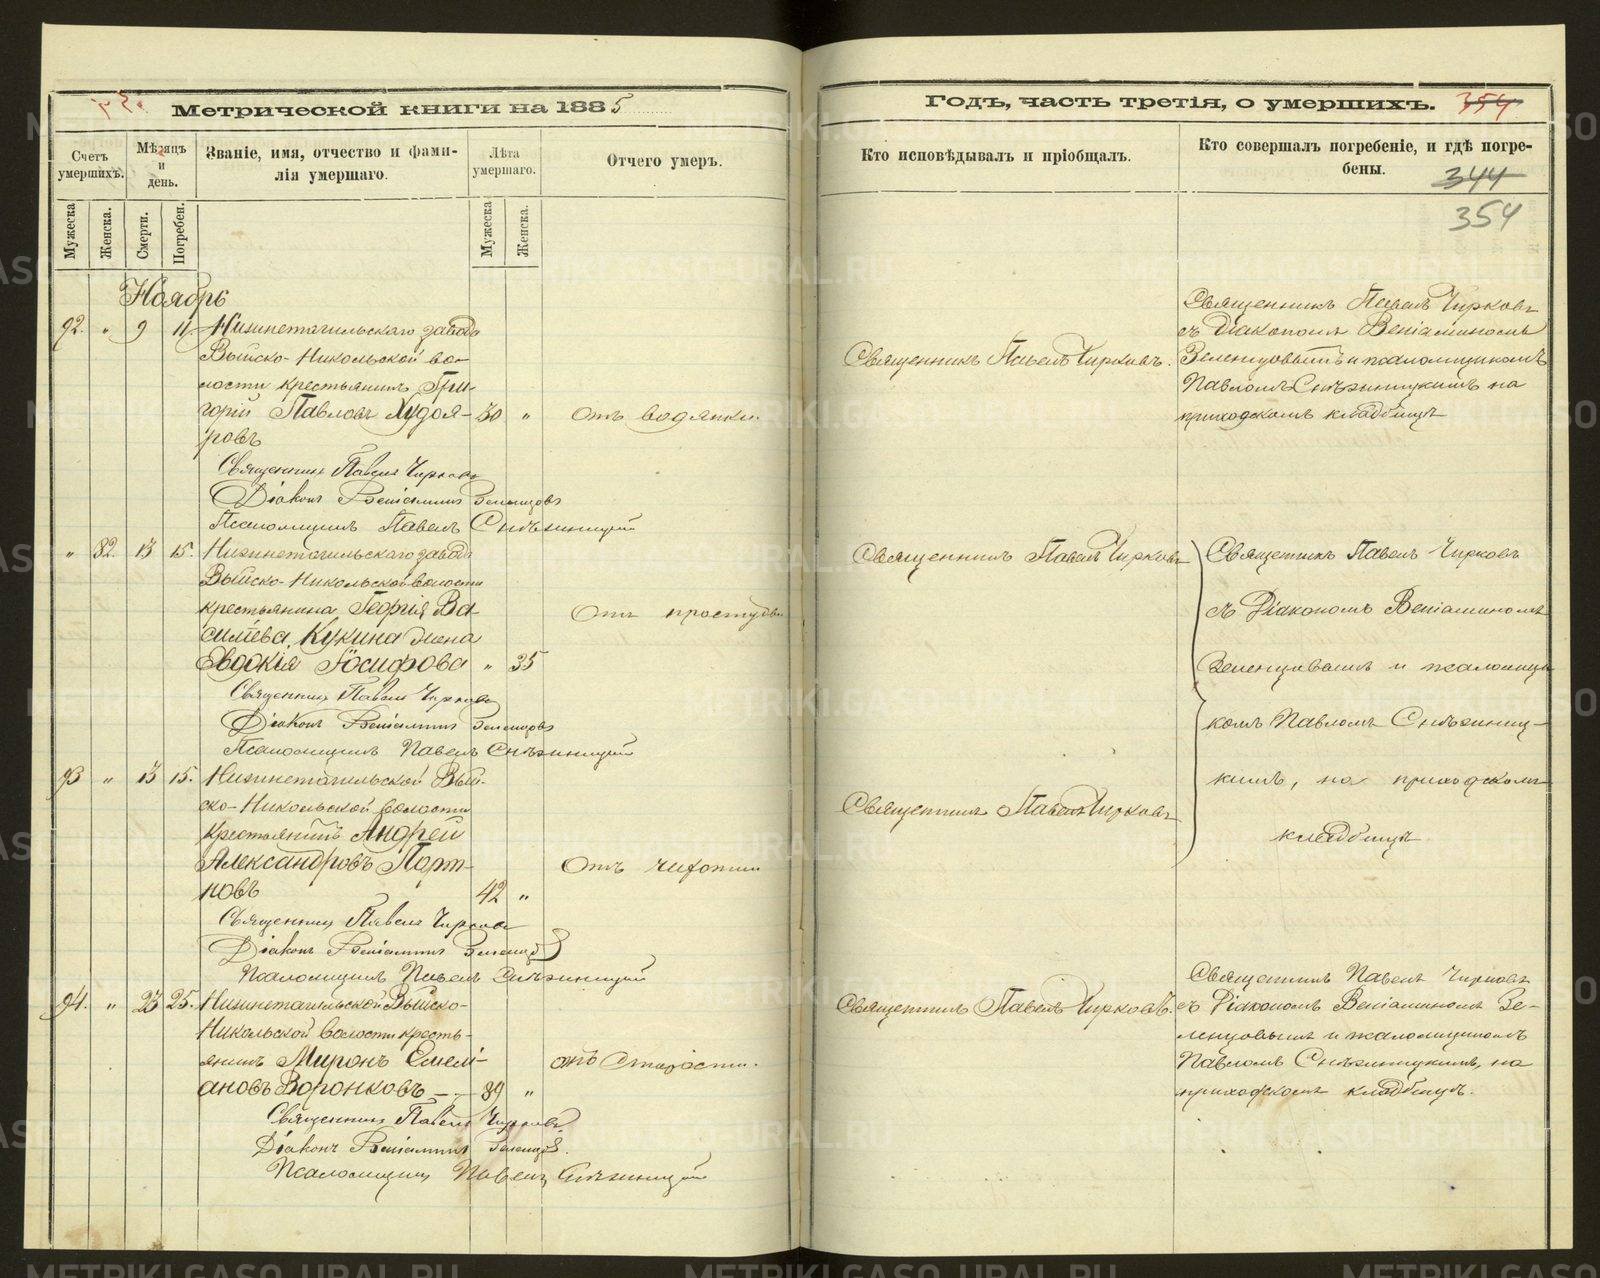 Метрической книги на 1885
Счетъ умершихъ.
Мѣсяцъ и день.
Званіе, имя, отчество и фами-
лія умершаго.
Лѣта умершаго.
Отчего умеръ.
Мужеска
Женска.
Смерти.
Погребен.
Мужеска
Женска.
Ноябрь
92. " 9 11 Нижнетагильскаго завода
Выйско-Никольской во-
лости крестьянинъ Гри-
горій Павловъ Худоя- 50 " Отъ водянки.
ровъ
Священникъ Павелъ Чирковъ
Діаконъ Веніаминъ Зеленцовъ
Псаломщикъ Павелъ Снѣжницкій
" 82. 13 15. Нижнетагильскаго завода
Выйско-Никольской волости
крестьянина Георгія Ва- Отъ простуды
сильева Кукина жена
Евдокія Іосифова " 35
Священникъ Павелъ Чирковъ
Діаконъ Веніаминъ Зеленцовъ
Псаломщикъ Павелъ Снѣжницкій
93 " 13 15. Нижнетагильской Вый-
ско-Никольской волости
крестьянинъ Андрей
Александровъ Порт- Отъ чихотки
новъ 42 "
Священникъ Павелъ Чирковъ
Діаконъ Веніаминъ Зеленцовъ
Псаломщикъ Павелъ Снѣжницкій
94. " 23 25. Нижнетагильской Выйско-
Никольской волости кресть-
янинъ Миронъ Емель- отъ Старости.
ановъ Воронковъ 89 "
Священникъ Павелъ Чирковъ
Діаконъ Веніаминъ Зеленцовъ.
Псаломщикъ Павелъ Снѣжницкій
Годъ, часть третія, о умершихъ. 354
Кто исповѣдывалъ и пріобщалъ.
Кто совершалъ погребеніе, и гдѣ погре-
бены.
344
354
Священникъ Павелъ Чирковъ.
Священникъ Павелъ Чирковъ
съ Діакономъ Веніаминомъ
Зеленцовымъ и псаломщикомъ
Павломъ Снѣжницкимъ на
приходскомъ кладбищѣ
Священникъ Павелъ Чирковъ
Священникъ Павелъ Чирковъ
съ Діакономъ Веніаминомъ
Зеленцовымъ и псаломщи
комъ Павломъ Снѣжниц-
кимъ, на приходскомъ
кладбищѣ.
Священникъ Павелъ Чирковъ
Священникъ Павелъ Чирковъ.
Священникъ Павелъ Чирковъ
съ Діакономъ Веніаминомъ Зе-
ленцовымъ и псаломщикомъ
Павломъ Снѣжницкимъ, на
приходскомъ кладбищѣ.
METRIKI.GASO-URAL.RU